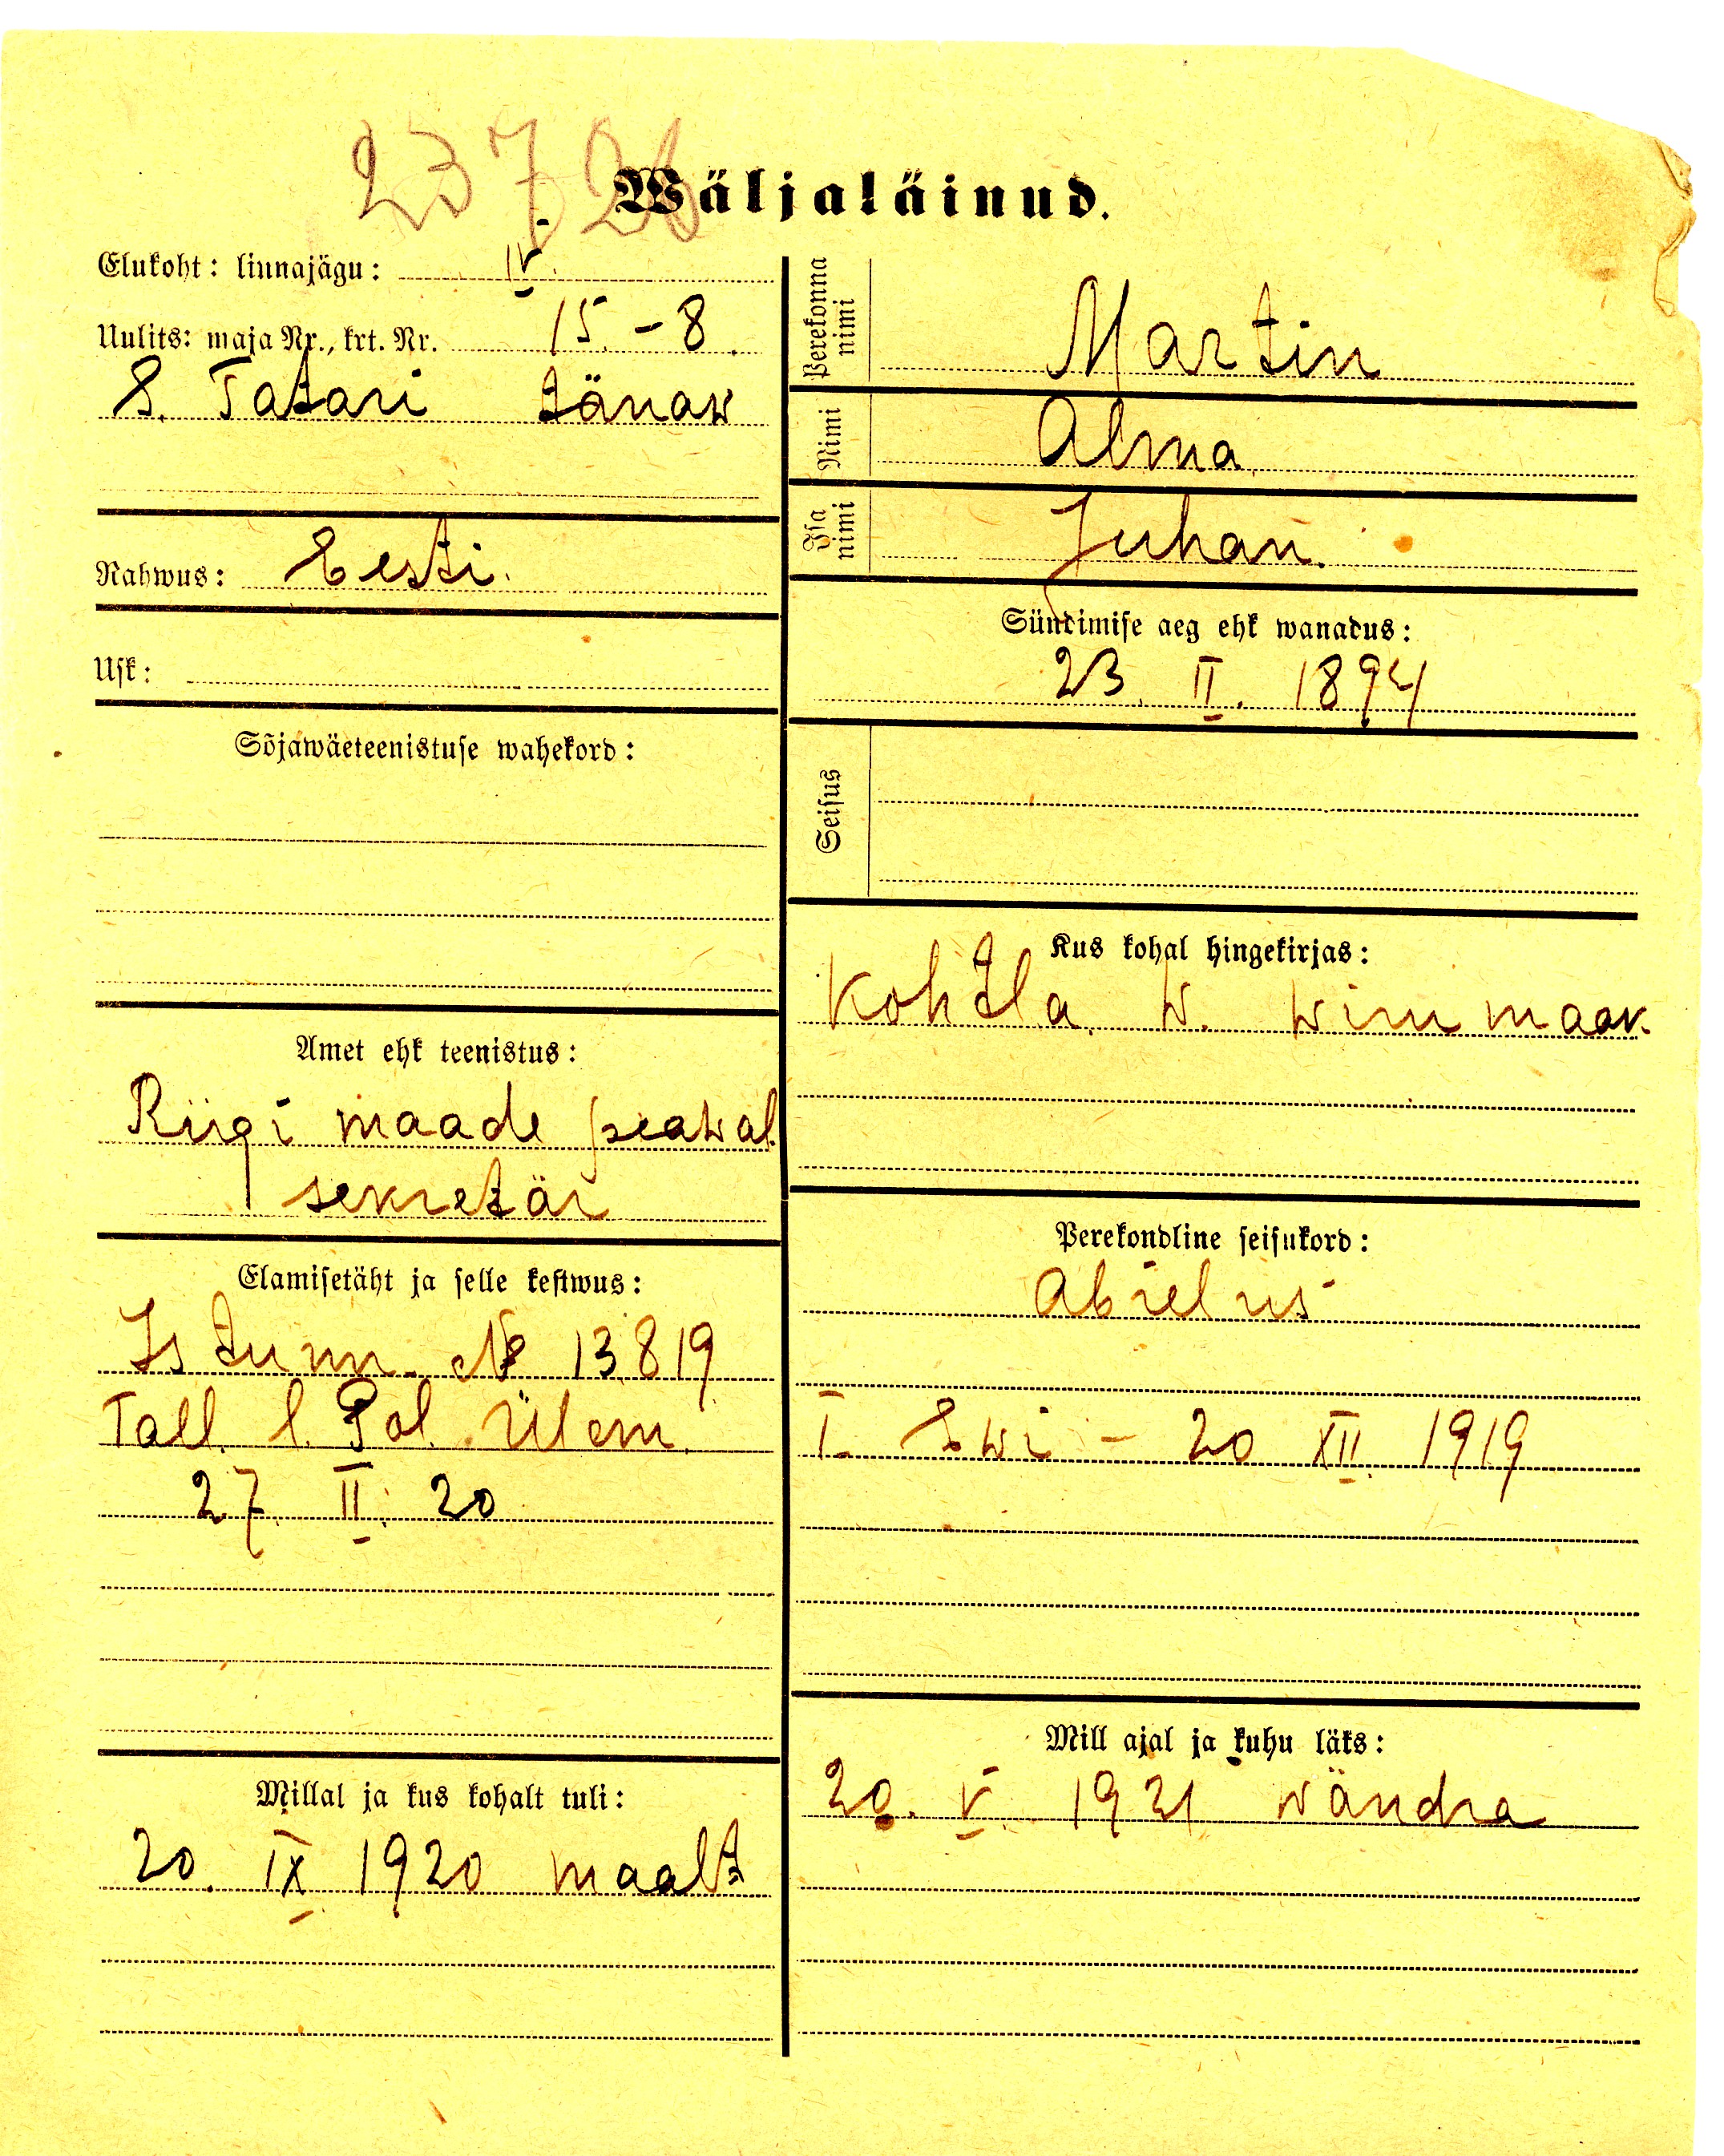 23726
Wäljaläinud.
Elukoht: linnajägu: IV.
Uulits: maja Nr., krt. Nr. 15. – 8.
S. Tatari tänaw
Rahwus: Eesti.
Usk:
Sõjawäeteenistuse wahekord:
Amet ehk teenistus:
Riigi maade peawal.
sekretär
Elamisetäht ja selle kestwus:
Is tunn. № 13819
Tall. l. Pol. Ülem.
27. II. 20
Millal ja kus kohalt tuli:
20. IX 1920 maalt
Perekonna nimi Martin
Nimi Alma
Isa nimi Juhan.
Sündimise aeg ehk wanadus:
23. II. 1894
Seisus
Kus kohal hingekirjas:
Kohtla w. Wirumaak.
Perekondline seisukord:
Abielus
T. – 20 XII. 1919
Mill ajal ja kuhu läks:
20. V. 1921 Wändra